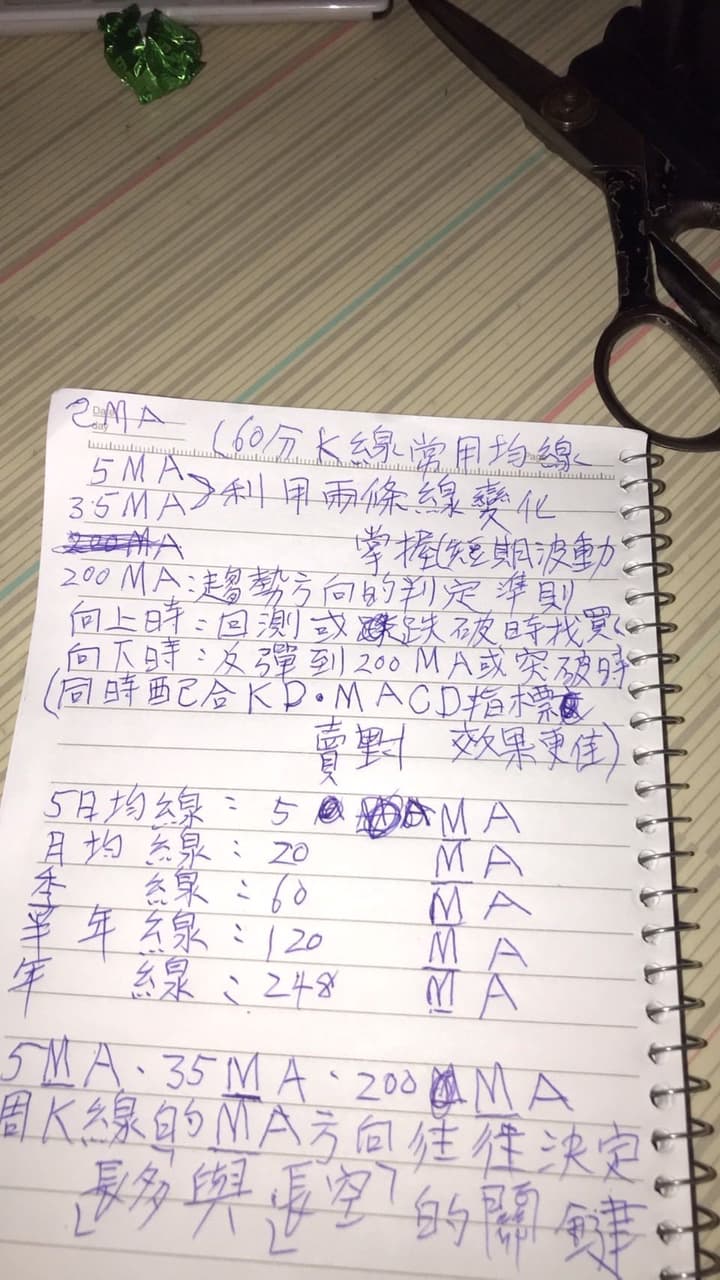 2MA
(60分K線常用均線
5MA
35MA>利用兩條線變化
200MA 掌握(短期波動
200MA:趨勢方向的判定準則
向上時:回測或跌破時找買
向下時:反彈到200MA或突破時
(同時配合KD·MACD指標
賣對 效果更佳)
5日均線:5 MA
月均線:20 MA
季線:60 MA
半年線:120 MA
年線:248 MA
5MA·35MA·200MA
周K線的MA方向往往決定
「長多與長空」的關鍵